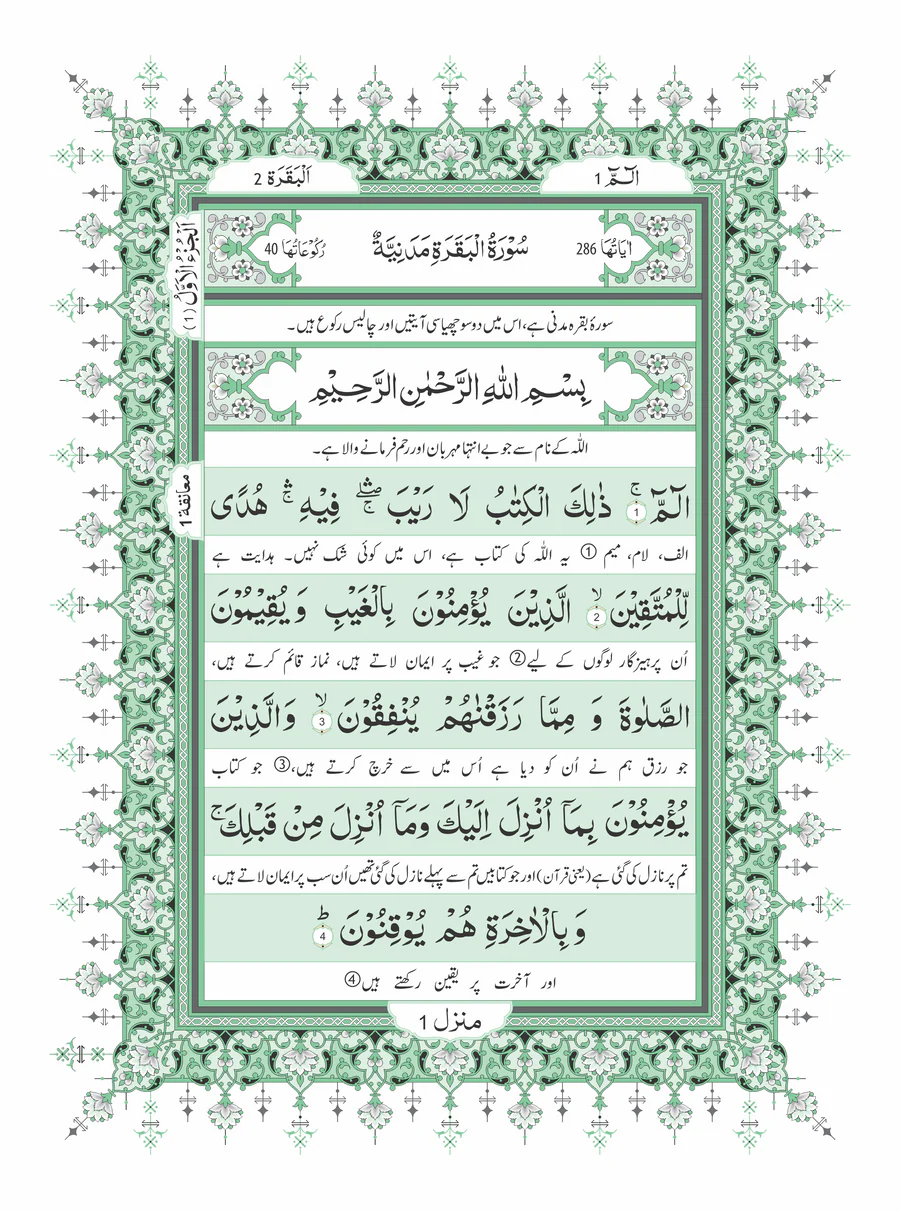 الٓمّٓ 1
اَلْبَقَرَة 2
اَلْجُزْءُ الْاَوَّلُ (1)
اٰيَاتُهَا 286
سُوْرَةُ الْبَقَرَةِ مَدَنِيَّةٌ
رُكُوْعَاتُهَا 40
سورۂ بقرہ مدنی ہے، اس میں دو سو چھیاسی آیتیں اور چالیس رکوع ہیں۔
بِسْمِ اللّٰهِ الرَّحْمٰنِ الرَّحِيْمِ
اللّٰہ کے نام سے جو بے انتہا مہربان اور رحم فرمانے والا ہے۔
معانقة 1
الٓمّٓ ۚ 1 ذٰلِكَ الْكِتٰبُ لَا رَيْبَ ۖۛۚ فِيْهِ ۛۚ هُدًى
الف، لام، میم ① یہ اللّٰہ کی کتاب ہے، اس میں کوئی شک نہیں۔ ہدایت ہے
لِّلْمُتَّقِيْنَ ۙ 2 الَّذِيْنَ يُؤْمِنُوْنَ بِالْغَيْبِ وَيُقِيْمُوْنَ
اُن پرہیزگار لوگوں کے لیے② جو غیب پر ایمان لاتے ہیں، نماز قائم کرتے ہیں،
الصَّلٰوةَ وَ مِمَّا رَزَقْنٰهُمْ يُنْفِقُوْنَ ۙ 3 وَالَّذِيْنَ
جو رزق ہم نے اُن کو دیا ہے اُس میں سے خرچ کرتے ہیں،③ جو کتاب
يُؤْمِنُوْنَ بِمَآ اُنْزِلَ اِلَيْكَ وَمَآ اُنْزِلَ مِنْ قَبْلِكَ ۚ
تم پر نازل کی گئی ہے (یعنی قرآن) اور جو کتابیں تم سے پہلے نازل کی گئی تھیں اُن سب پر ایمان لاتے ہیں،
وَبِالْاٰخِرَةِ هُمْ يُوْقِنُوْنَ ؕ 4
اور آخرت پر یقین رکھتے ہیں④
منزل 1